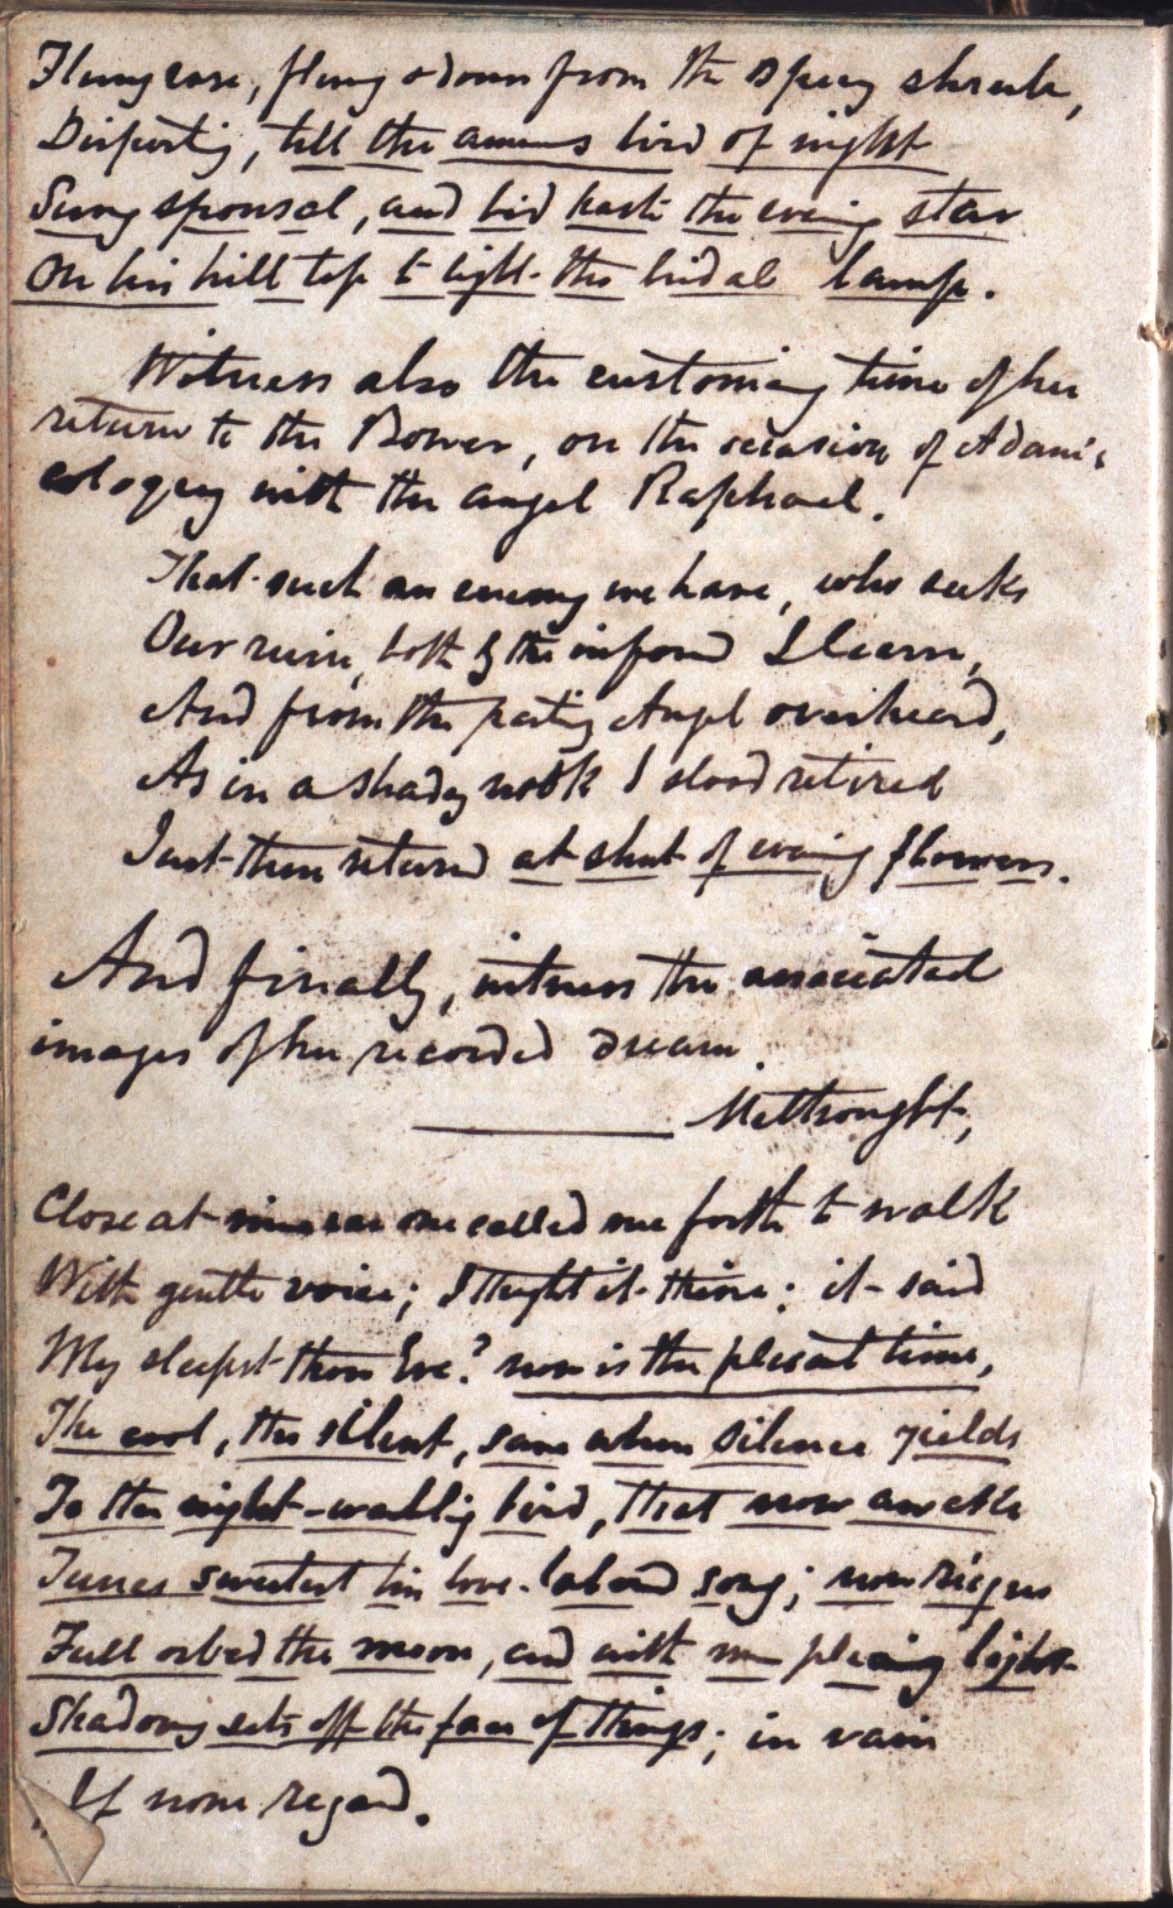 Flung rose, flung odours from the spicy shrub,
Disporting, till the amorous bird of night
Sung spousal, and bid haste the evening star
On his hill top to light the bridal lamp.
Witness also the customary time of her
return to the Bower, on the occasion of Adam's
coloquy with the angel Raphael.
That such an enemy we have, who seeks
Our ruin, both by thee informed I learn,
And from the parting Angel overheard,
As in a shady nook I stood retired
Just then returned at shut of evening flowers.
And finally, witness the associated
images of her recorded dream.
Methought,
Close at mine ear one called me forth to walk
With gentle voice; I thought it thine; it said
Why sleepst thou Eve? now is the pleasant time,
The cool, the silent, save when silence yields
To the night-warbling bird, that now awake
Tunes sweetest his love-labored song; now reigns
Full orbed the moon, and with more pleasing light
Shadowy sets off the face of things; in vain
If none regard.